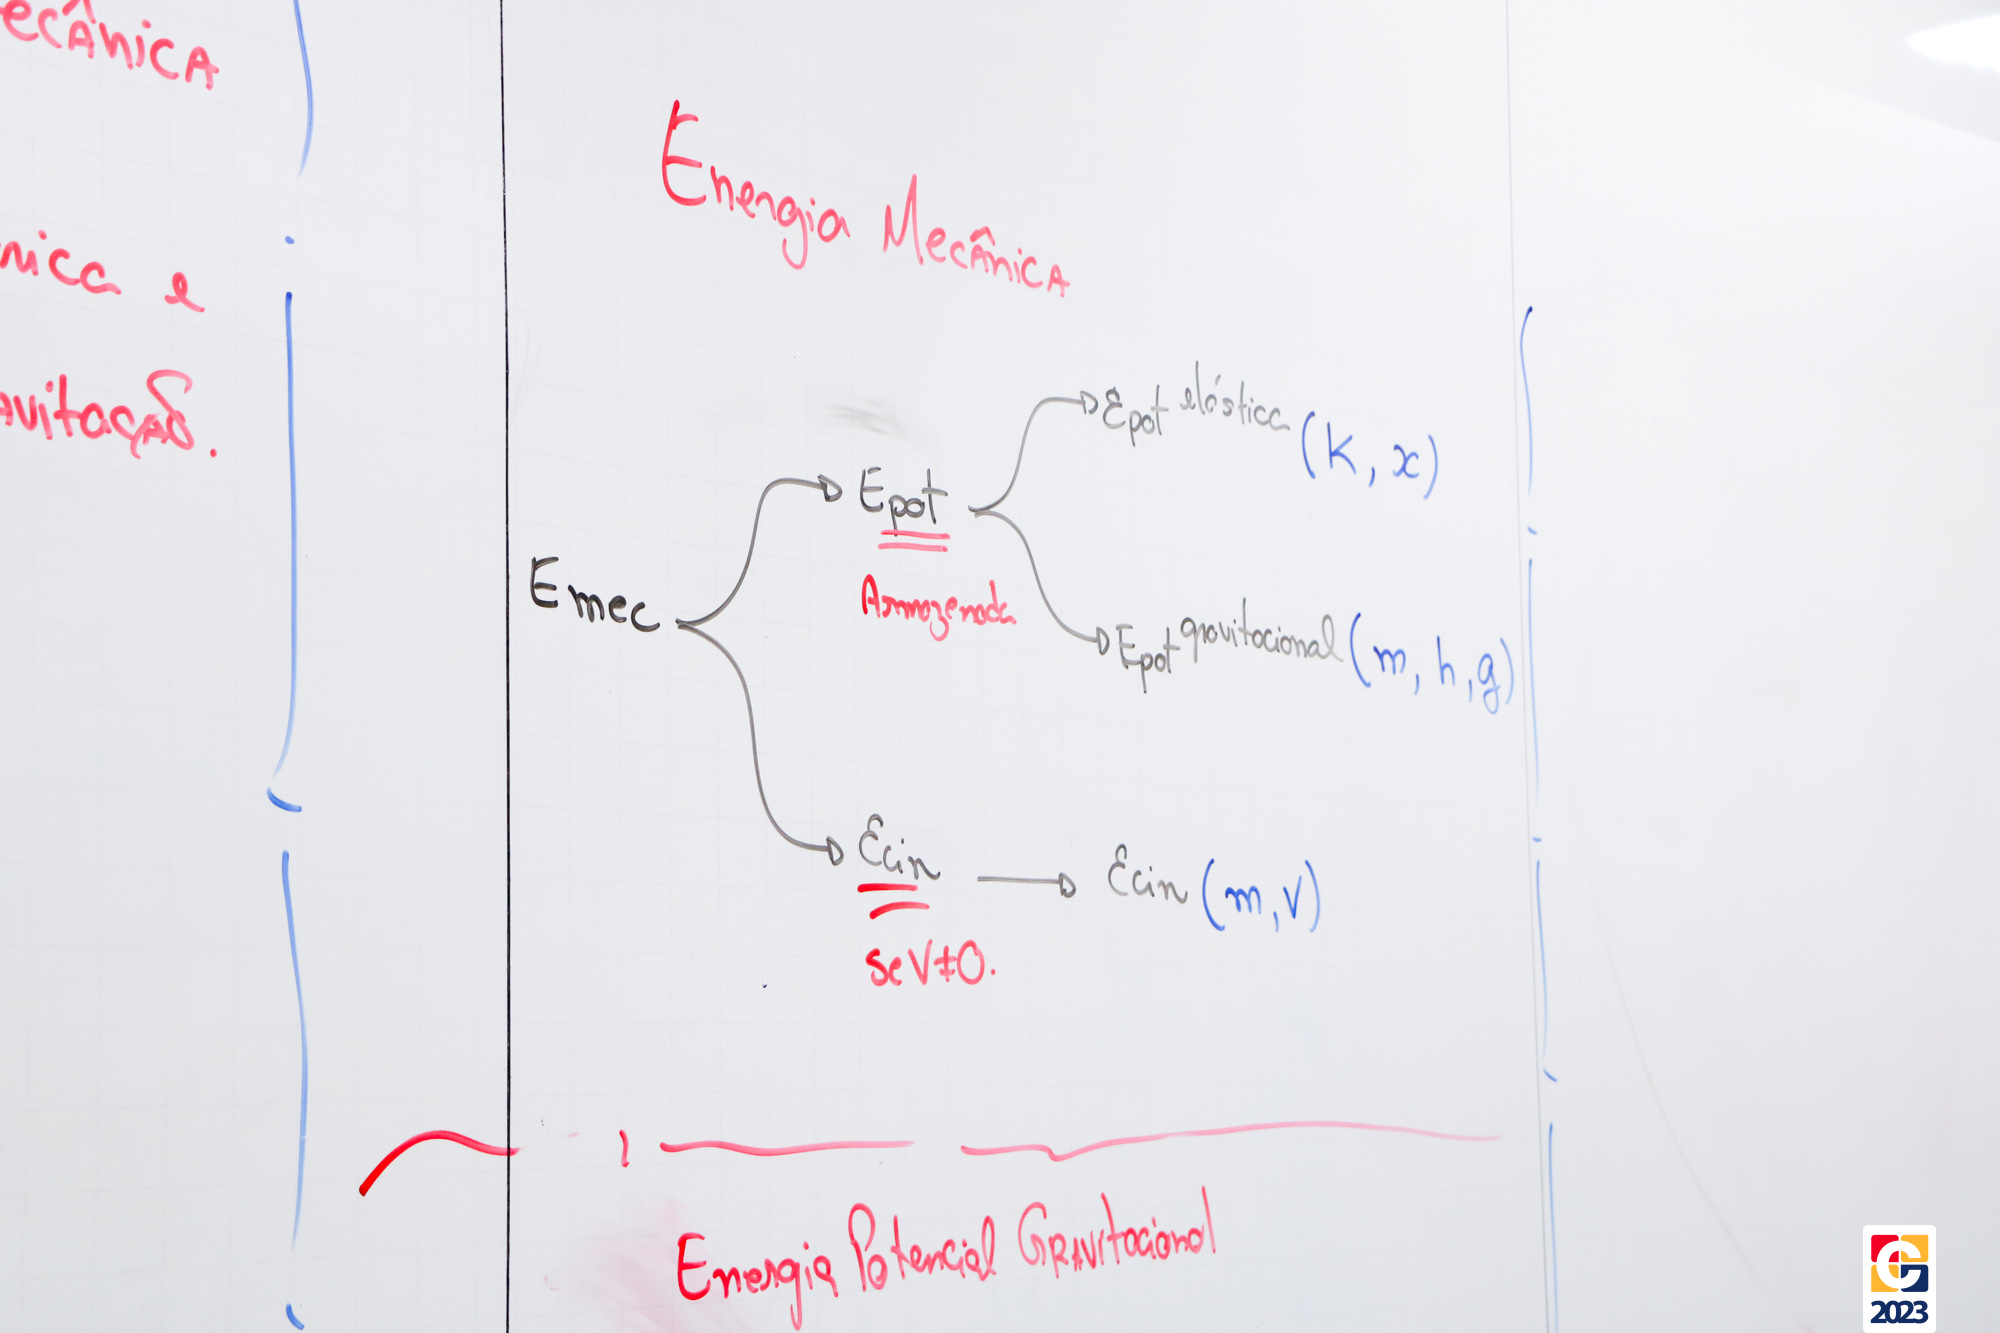 ecânica
nica e
avitação.
Energia Mecânica
Epot elástica (K, x)
Epot
Armazenada
Emec
Epot gravitacional (m, h, g)
Ecin → Ecin (m, v)
se V≠0.
Energia Potencial Gravitacional
G
2023